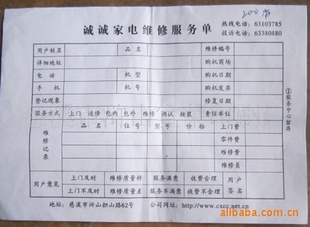 诚诚家电维修服务单
热线电话：63103785
投诉电话：63380880
用户姓名 品名 维修编号
详细地址 购机商场
电话 机型 购机日期
手机 机号 发票号码
登记现象 修复日期
服务方式 上门 送修 包内 包外 维修 调试 拆装 责任单位
维修记录 品名 位号 型号 价格 上门费
零件费
维修费
合计
用户意见 上门及时 维修质量好 服务满意 收费合理 用户签名
上门不及时 维修质量差 服务不满意 收费不合理
①服务中心留存
地址：慈溪市浒山担山路62号 公司网址：http://www.cxcc.net.cn
alibaba.com.cn